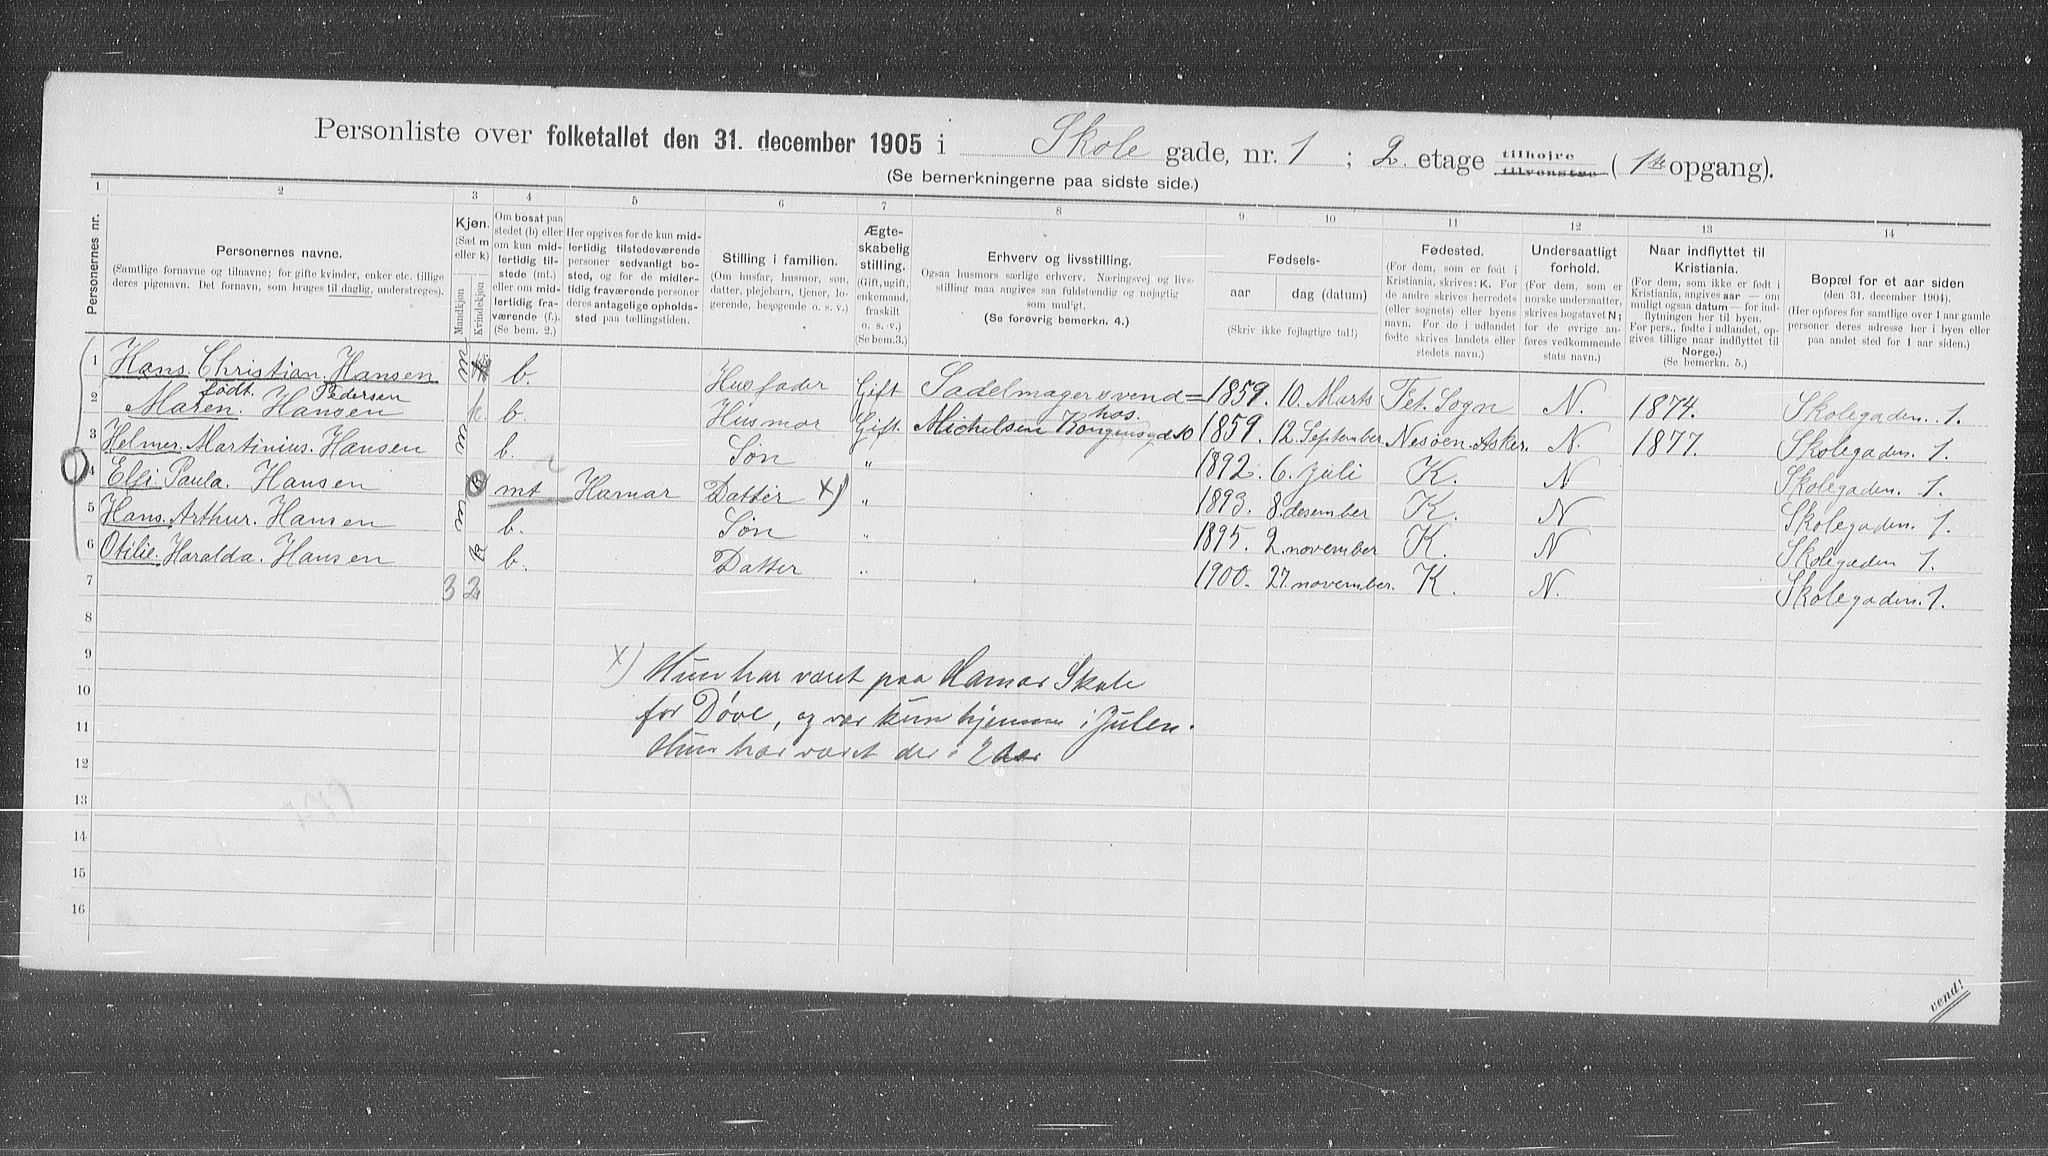 Personliste over folketallet den 31. december 1905 i Skole gade, nr. 1 ; 2. etage tilhøjre tilvenstre ( 1ste opgang).
(Se bemerkningerne paa sidste side.)
1 2 3 4 5 6 7 8 9 10 11 12 13 14
Personernes nr.
Personernes navne.
(Samtlige fornavne og tilnavne; for gifte kvinder, enker etc. tillige
deres pigenavn. Det fornavn, som bruges til daglig, understreges).
Kjøn.
(Sæt m
eller k)
Mandkjøn
Kvindekjøn
Om bosat paa
stedet (b) eller
om kun mid-
lertidig til-
stede (mt.)
eller om mid-
lertidig fra-
værende (f.).
(Se bem. 2.)
Her opgives for de kun mid-
lertidig tilstedeværende
personer sedvanligt bo-
sted, og for de midler-
tidig fraværende personer
deres antagelige opholds-
sted paa tællingstiden.
Stilling i familien.
(Om husfar, husmor, søn,
datter, plejebarn, tjener, lo-
gerende, besøgende o. s. v.)
Ægte-
skabelig
stilling.
(Gift, ugift,
enkemand,
fraskilt
o. s. v.)
(Se bem.3.)
Erhverv og livsstilling.
Ogsaa husmors særlige erhverv. Næringsvej og livs-
stilling maa angives saa fuldstændig og nøjagtig
som muligt.
(Se forøvrig bemerkn. 4.)
Fødsels-
aar
dag (datum)
(Skriv ikke fejlagtige tal!)
Fødested.
(For dem, som er født i
Kristiania, skrives: K. For
de andre skrives herredets
(eller sognets) eller byens
navn. For de i udlandet
fødte skrives landets eller
stedets navn.)
Undersaatligt
forhold.
(For dem, som er
norske undersaatter,
skrives bogstavet N;
for de øvrige an-
føres vedkommende
stats navn.)
Naar indflyttet til
Kristiania.
(For dem, som ikke er født i
Kristiania, angives aar — om
muligt ogsaa datum — for ind-
flytningen her til byen.
For pers., fødte i udlandet, op-
gives tillige naar indflyttet til
Norge.)
(Se bemerkn. 5.)
Bopæl for et aar siden
(den 31. december 1904).
(Her opføres for samtlige over 1 aar gamle
personer deres adresse her i byen eller
paa andet sted for 1 aar siden.)
1 Hans. Christian. Hansen m b. Husfader Gift Sadelmagersvend= 1859. 10. Marts Fet. Sogn N. 1874. Skolegaden. 1.
født. Pedersen
2 Maren. Hansen k b. Husmor Gift. Michelsen Kongensgd 10 hos. 1859. 12. September Nesøen. Asker. N. 1877. Skolegaden. 1.
3 Helmer. Martinius. Hansen m b. Søn " 1892. 6. Juli K. N Skolegaden. 1.
4 Elfi. Paula. Hansen mt Hamar Datter X) " 1893. 8. desember K. N Skolegaden. 1.
5 Hans. Arthur. Hansen m b. Søn " 1895. 2. november K. N Skolegaden 1.
6 Otilie. Haralda. Hansen b. Datter " 1900. 27. november. K. N. Skolegaden. 1.
7 3 2
8
9
10
11
12
13
14
15
16
X) Hun har været paa Hamar Skole
for Døve, og var kun hjemme i Julen.
Hun har været der i 2 Aar
vend!